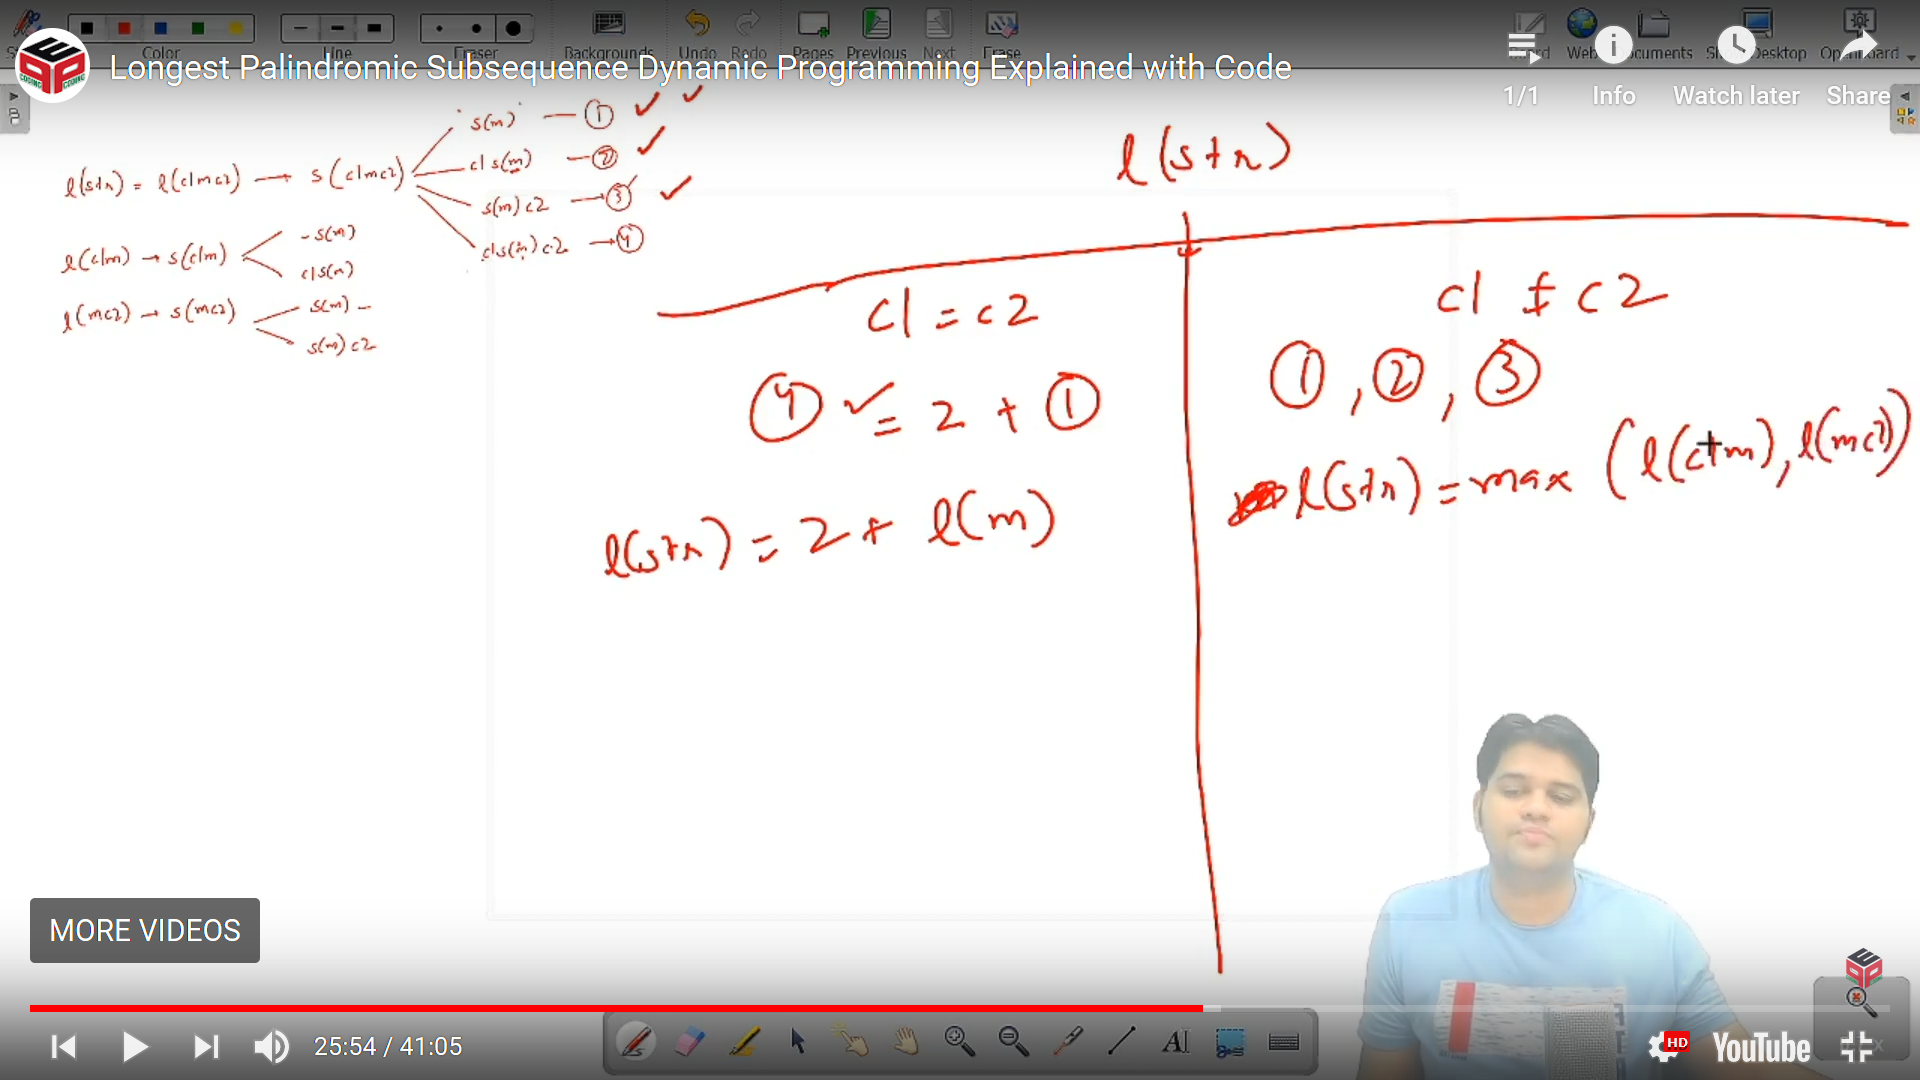 Color Line Eraser Backgrounds Undo Redo Pages Previous Next Erase
Longest Palindromic Subsequence Dynamic Programming Explained with Code
1/1 Info Watch later Share
l(str) = l(c1mc2) → s(c1mc2)
s(m) — ① ✓ ✓
c1 s(m) — ② ✓
s(m) c2 → ③ ✓
c1 s(m) c2 → ④
l(c1m) → s(c1m)
- s(m)
c1 s(m)
l(mc2) → s(mc2)
s(m) -
s(m) c2
l(str)
c1 = c2
④ ✓ = 2 + ①
l(str) = 2 + l(m)
c1 ≠ c2
①, ②, ③
l(str) = max (l(c1m), l(mc2))
MORE VIDEOS
25:54 / 41:05
HD YouTube